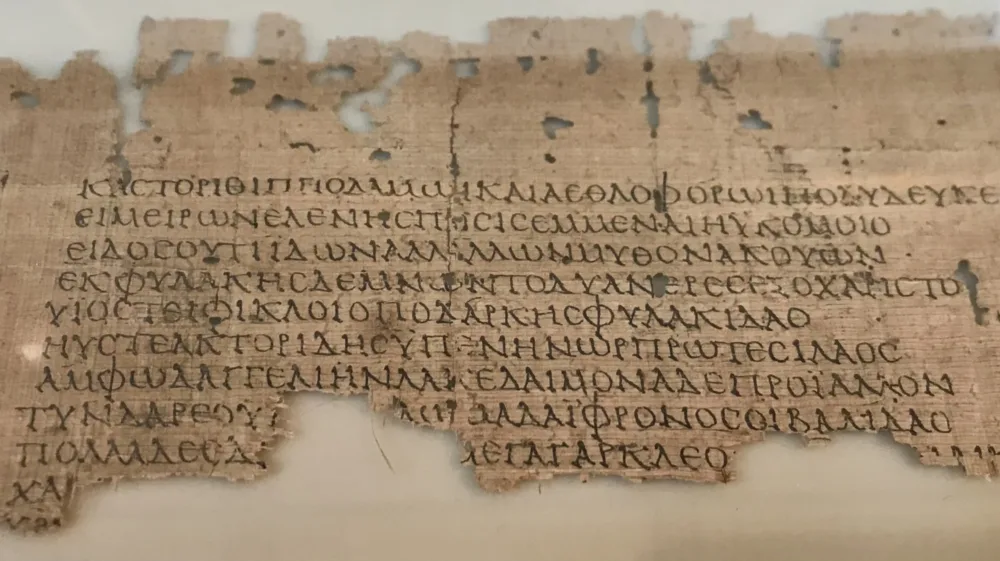 ΚΑϹΤΟΡΙΘΙΠΠΟΔΑΜΩΙΚΑΙΑΕΘΛΟΦΟΡΩΙΠΟΛΥΔΕΥΚΕ
ΕΙΜΕΙΡΩΝΕΛΕΝΗϹΠΟϹΙϹΕΜΜΕΝΑΙΗΥΚΟΜΟΙΟ
ΕΙΔΟϹΟΥΤΙΙΔΩΝΑΛΛΑΛΛΩΝΜΥΘΟΝΑΚΟΥΩΝ
ΕΚΦΥΛΑΚΗϹΔΕΜΝΩΝΤΟΔΥΑΝΕΡΕϹΕΞΟΧΑΡΙϹΤΟΙ
ΥΙΟϹΤΕΙΦΙΚΛΟΙΟΠΟΔΑΡΚΗϹΦΥΛΑΚΙΔΑΟ
ΗΥϹΤΕΑΚΤΟΡΙΔΗϹΥΠΕΡΗΝΩΡΠΡΩΤΕϹΙΛΑΟϹ
ΑΜΦΩΔΑΓΓΕΛΙΗΝΛΑΚΕΔΑΙΜΟΝΑΔΕΠΡΟΪΑΛΛΟΝ
ΤΥΝΔΑΡΕΟΥ ΔΩΜΑΔΑΪΦΡΟΝΟϹΟΙΒΑΛΙΔΑΟ
ΠΟΛΛΑΔΕϹΔ ΜΕΓΑΓΑΡΚΛΕΟ
ΧΑΛ